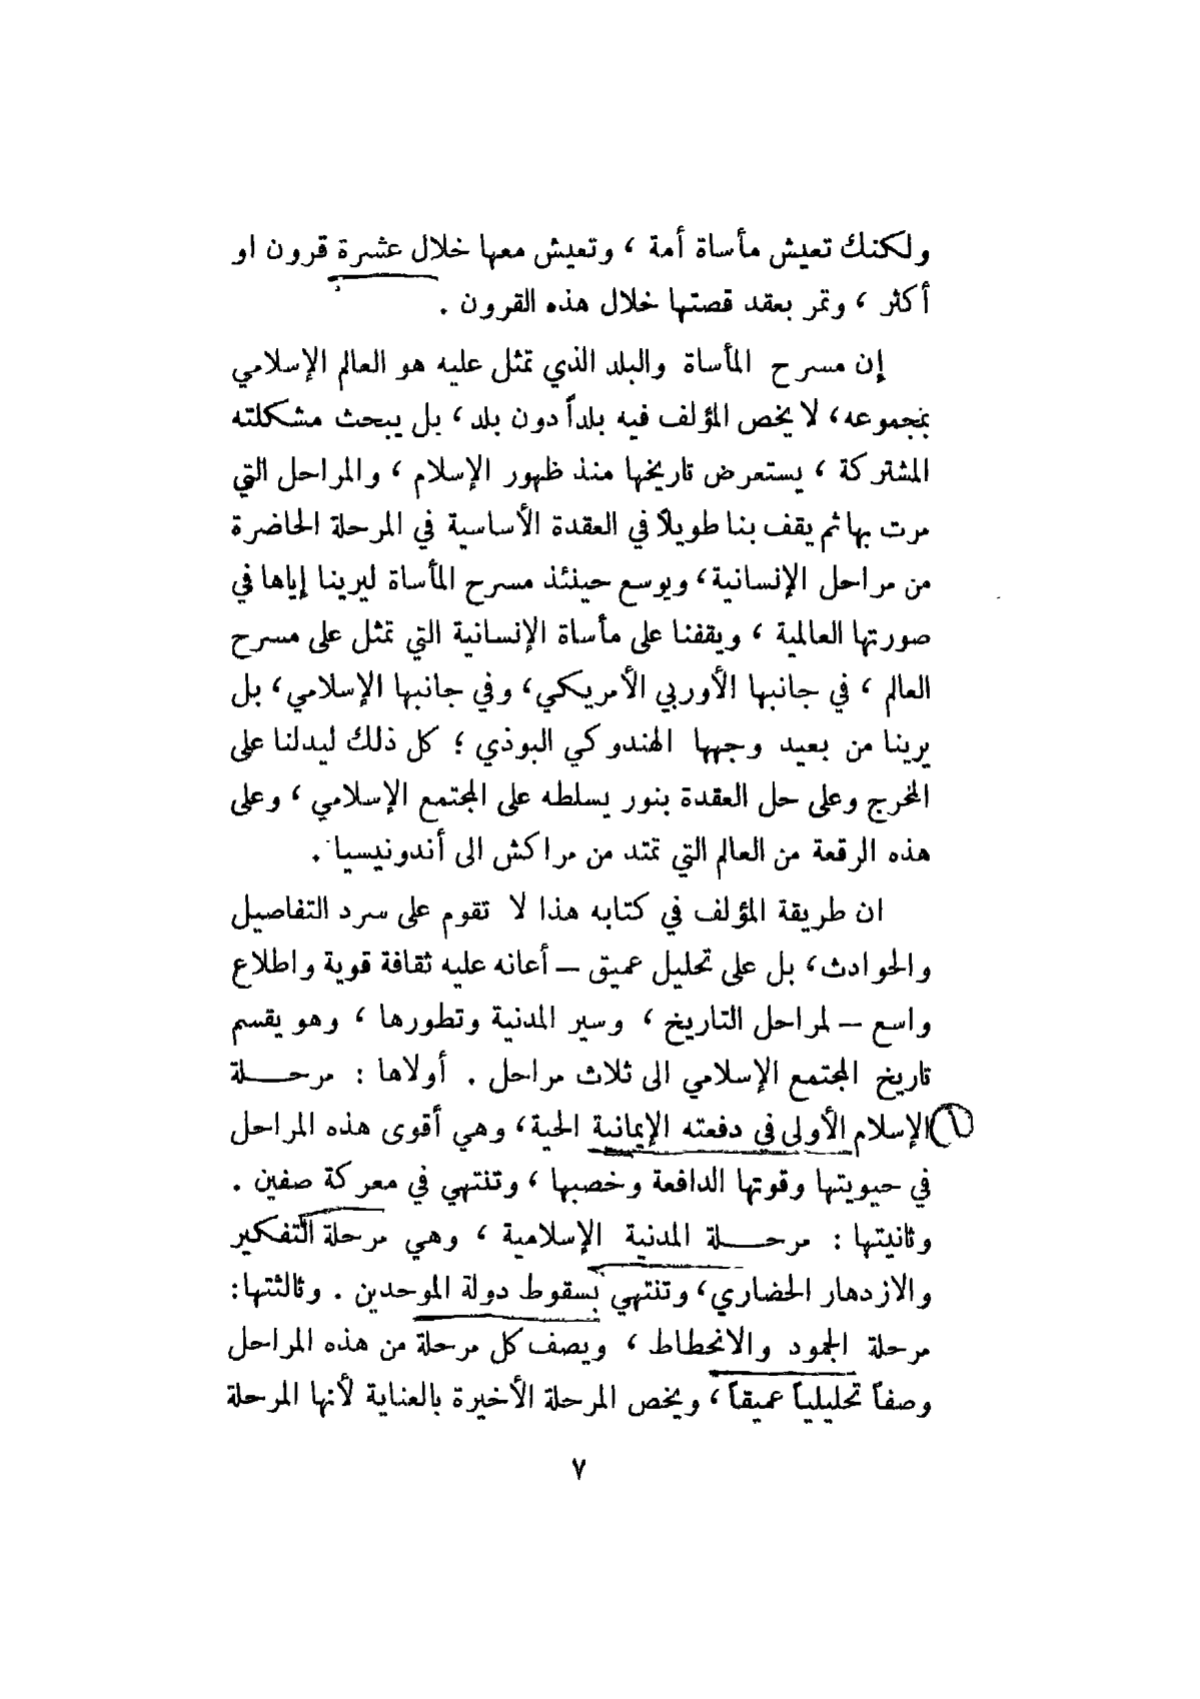 ولكنك تعيش مأساة أمة ، وتعيش معها خلال عشرة قرون او
أكثر ، وتمر بعقد قصتها خلال هذه القرون .
إن مسرح المأساة والبلد الذي تمثل عليه هو العالم الإسلامي
بمجموعه، لا يخص المؤلف فيه بلداً دون بلد ، بل يبحث مشكلته
المشتركة ، يستعرض تاريخها منذ ظهور الإسلام ، والمراحل التي
مرت بها ثم يقف بنا طويلاً في العقدة الأساسية في المرحلة الحاضرة
من مراحل الإنسانية، ويوسع حينئذ مسرح المأساة ليرينا إياها في
صورتها العالمية ، ويقفنا على مأساة الإنسانية التي تمثل على مسرح
العالم ، في جانبها الأوربي الأمريكي، وفي جانبها الإسلامي، بل
يرينا من بعيد وجهها الهندوكي البوذي ؛ كل ذلك ليدلنا على
المخرج وعلى حل العقدة بنور يسلطه على المجتمع الإسلامي ، وعلى
هذه الرقعة من العالم التي تمتد من مراكش الى أندونيسيا .
ان طريقة المؤلف في كتابه هذا لا تقوم على سرد التفاصيل
والحوادث، بل على تحليل عميق – أعانه عليه ثقافة قوية واطلاع
واسع – لمراحل التاريخ ، وسير المدنية وتطورها ، وهو يقسم
تاريخ المجتمع الإسلامي الى ثلاث مراحل . أولاها : مرحـــلة
١ الإسلام الأولى في دفعته الإيمانية الحية، وهي أقوى هذه المراحل
في حيويتها وقوتها الدافعة وخصبها ، وتنتهي في معركة صفين .
وثانيتها : مرحـــلة المدنية الإسلامية ، وهي مرحلة التفكير
والازدهار الحضاري، وتنتهي بسقوط دولة الموحدين . وثالثتها:
مرحلة الجمود والانحطاط ، ويصف كل مرحلة من هذه المراحل
وصفاً تحليلياً عميقاً، ويخص المرحلة الأخيرة بالعناية لأنها المرحلة
٧